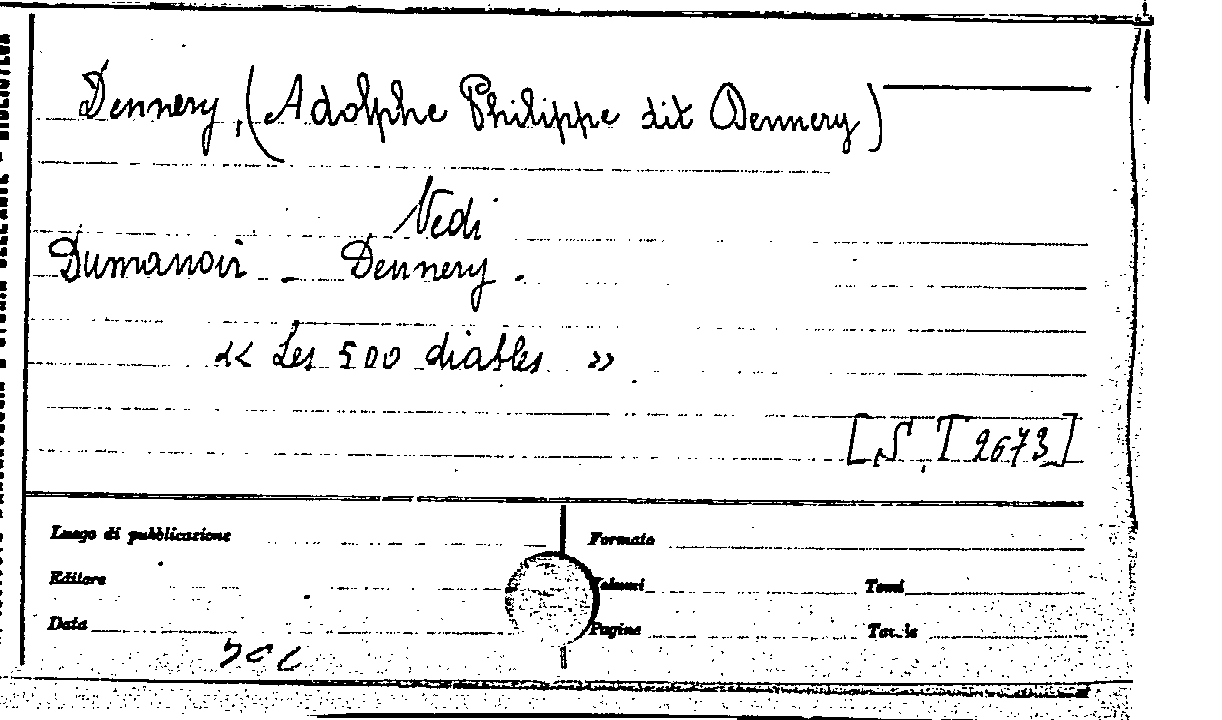 Dennery, (Adolphe Philippe dit Dennery)
Vedi
Dumanoir - Dennery.
« Les 500 diables »
[S.T 2673]
Luogo di pubblicazione
Formato
Editore
Volumi
Tomi
Data
Pagine
Tavole